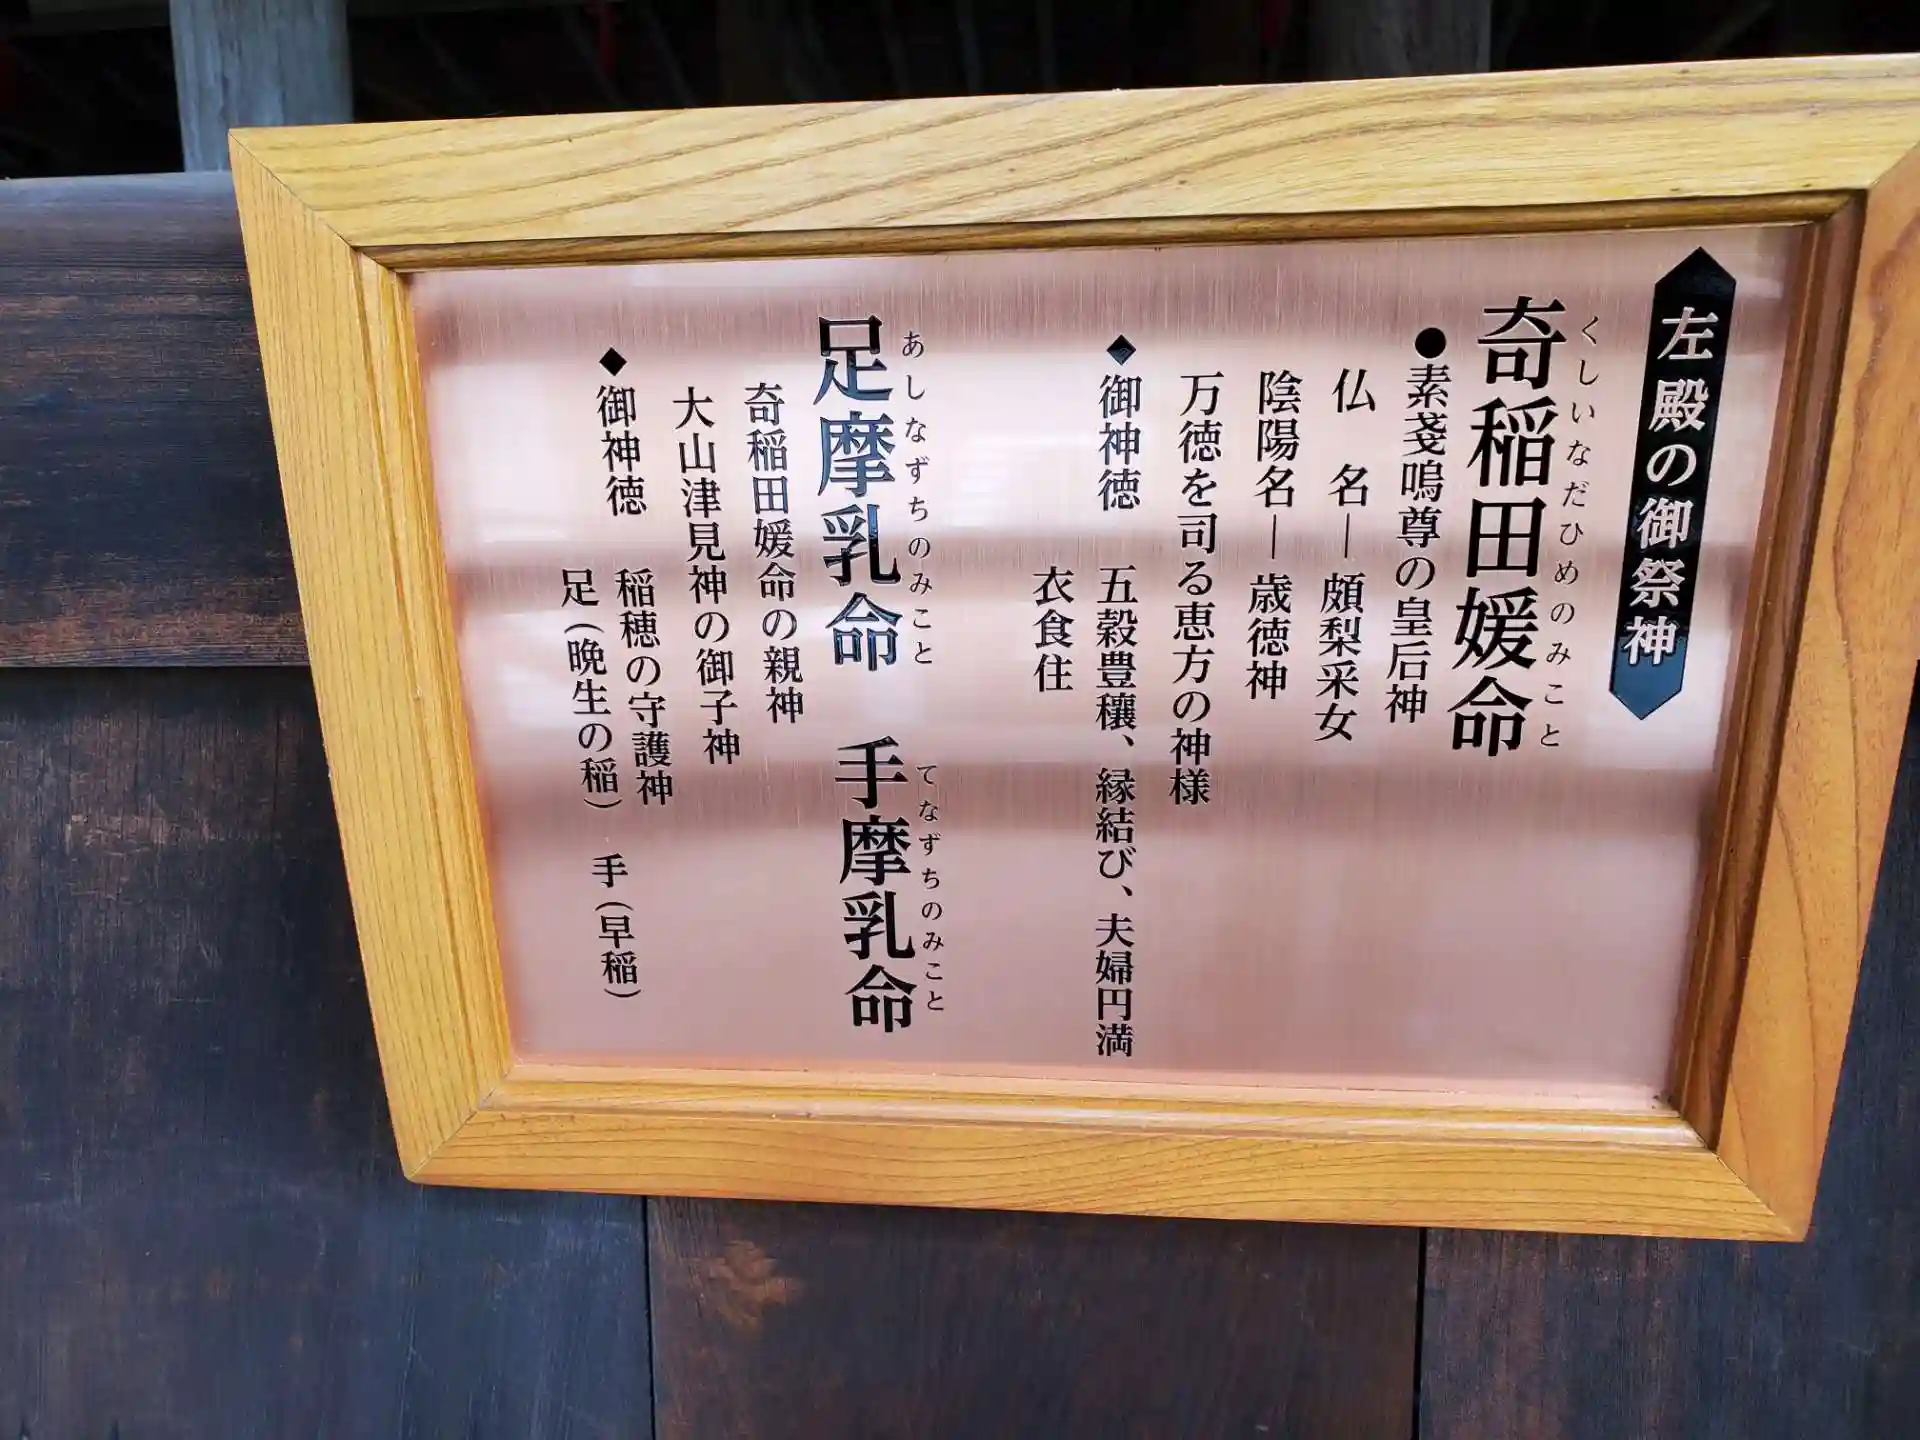 左殿の御祭神
奇稲田媛命
くしいなだひめのみこと
●素戔嗚尊の皇后神
仏　名―頗梨采女
陰陽名―歳徳神
万徳を司る恵方の神様
◆御神徳　五穀豊穰、縁結び、夫婦円満
衣食住
足摩乳命　手摩乳命
あしなずちのみこと　てなずちのみこと
奇稲田媛命の親神
大山津見神の御子神
◆御神徳　稲穂の守護神
足（晩生の稲）　手（早稲）